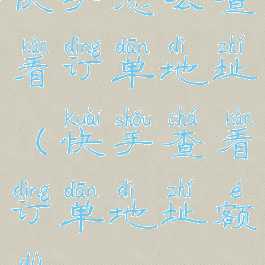 快手怎么查
kàn dìng dān dì zhǐ
看订单地址
kuài shǒu chá kàn
(快手查看
dìng dān dì zhǐ é
订单地址额
dù